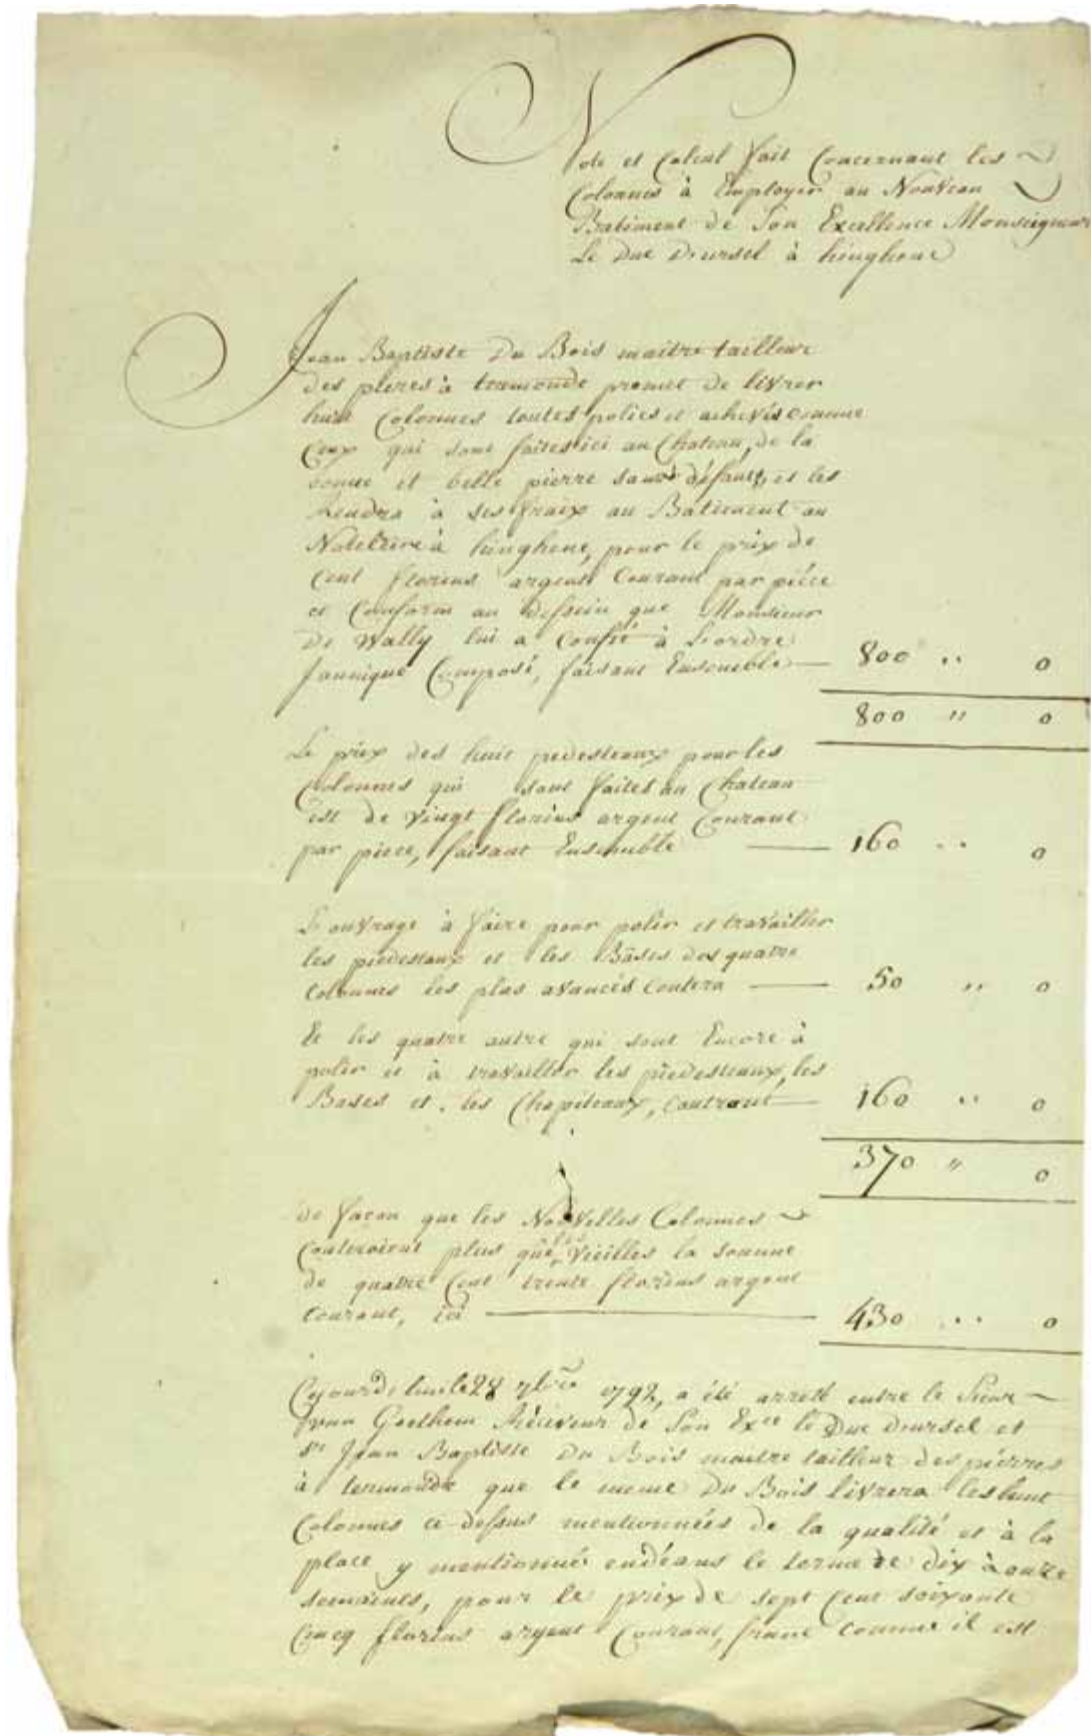 Note et Calcul fait Concernant les
Colonnes à Employer au Nouveau
Batiment de Son Excellence Monseigneur
Le Duc D'ursel à hinghene
Jean Baptiste Du Bois maitre tailleur
des pieres à tremonde promet de livrer
huit Colonnes toutes polies et achevés comme
Ceux qui sont faites ici au Chateau, de la
bonne et belle pierre sans défauts, et les
Rendra à ses fraix au Batiment au
à hinghene, pour le prix de
Cent florins argent Courant par piéce
et Conform au dessein que Monsieur
De Wally lui a Confié à L'ordre
Jannique Composé, faisant Ensemble — 800 " 0
800 " 0
Le prix des huit piedesteaux pour les
Colonnes qui sont faites au Chateau
est de vingt florins argent Courant
par piece, faisant Ensemble — 160 " 0
L'ouvrage à faire pour polir et travailler
les piedesteaux et les Bâses des quatre
Colonnes les plus avancés Coutera — 50 " 0
Et les quatre autre qui sont Encore à
polir et à travailler les piedesteaux, les
Bases et les Chapiteaux, Coutront — 160 " 0
370 " 0
de facon que les Nouvelles Colonnes
Couteroient plus que les vieilles la somme
de quatre Cent trente florins argent
Courant, ici — 430 " 0
Cejourd'huile 28 7bre 1792, a été arreté entre le Sieur
Van Goethem Réceveur de Son Exce le Duc d'ursel et
Sr Jean Baptiste Du Bois maitre tailleur des pierres
à termonde que le meme Du Bois livrera les huit
Colonnes ci-dessus mentionnées de la qualité et à la
place y mentionné endéans le terme de dix à onze
semaines, pour le prix de sept Cent soixante
Cincq florins argent Courant, franc comme il est